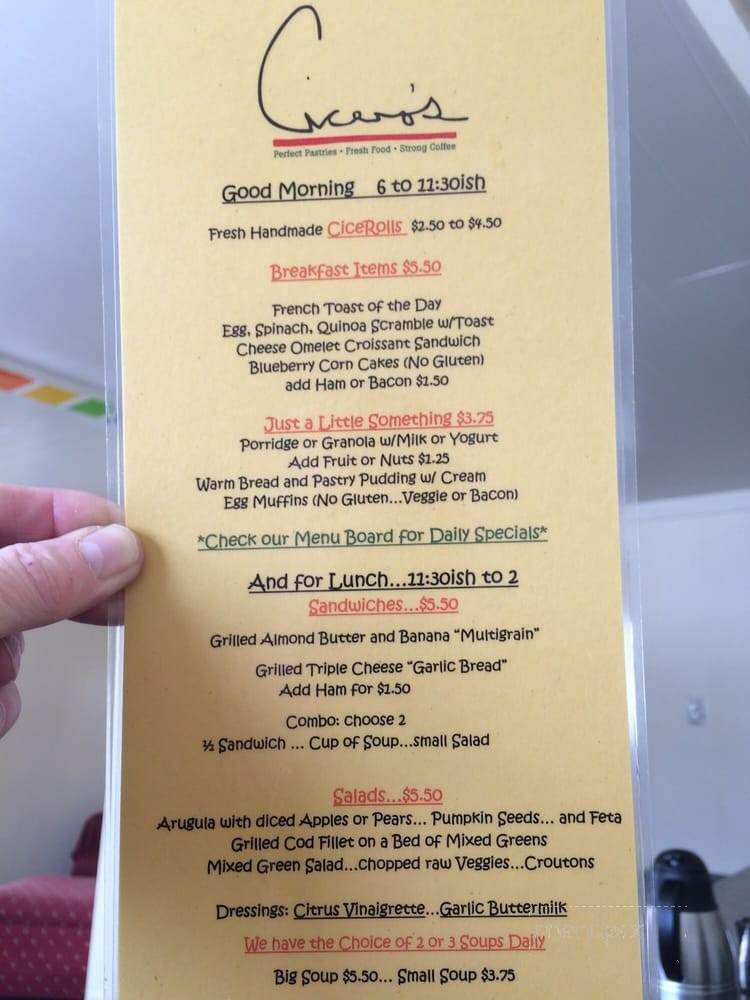 Cicero's
Perfect Pastries • Fresh Food • Strong Coffee
Good Morning 6 to 11:30ish
Fresh Handmade CiceRolls $2.50 to $4.50
Breakfast Items $5.50
French Toast of the Day
Egg, Spinach, Quinoa Scramble w/Toast
Cheese Omelet Croissant Sandwich
Blueberry Corn Cakes (No Gluten)
add Ham or Bacon $1.50
Just a Little Something $3.75
Porridge or Granola w/Milk or Yogurt
Add Fruit or Nuts $1.25
Warm Bread and Pastry Pudding w/ Cream
Egg Muffins (No Gluten...Veggie or Bacon)
*Check our Menu Board for Daily Specials*
And for Lunch...11:30ish to 2
Sandwiches...$5.50
Grilled Almond Butter and Banana "Multigrain"
Grilled Triple Cheese "Garlic Bread"
Add Ham for $1.50
Combo: choose 2
½ Sandwich ... Cup of Soup...small Salad
Salads...$5.50
Arugula with diced Apples or Pears... Pumpkin Seeds... and Feta
Grilled Cod Fillet on a Bed of Mixed Greens
Mixed Green Salad...chopped raw Veggies...Croutons
Dressings: Citrus Vinaigrette...Garlic Buttermilk
We have the Choice of 2 or 3 Soups Daily
Big Soup $5.50... Small Soup $3.75